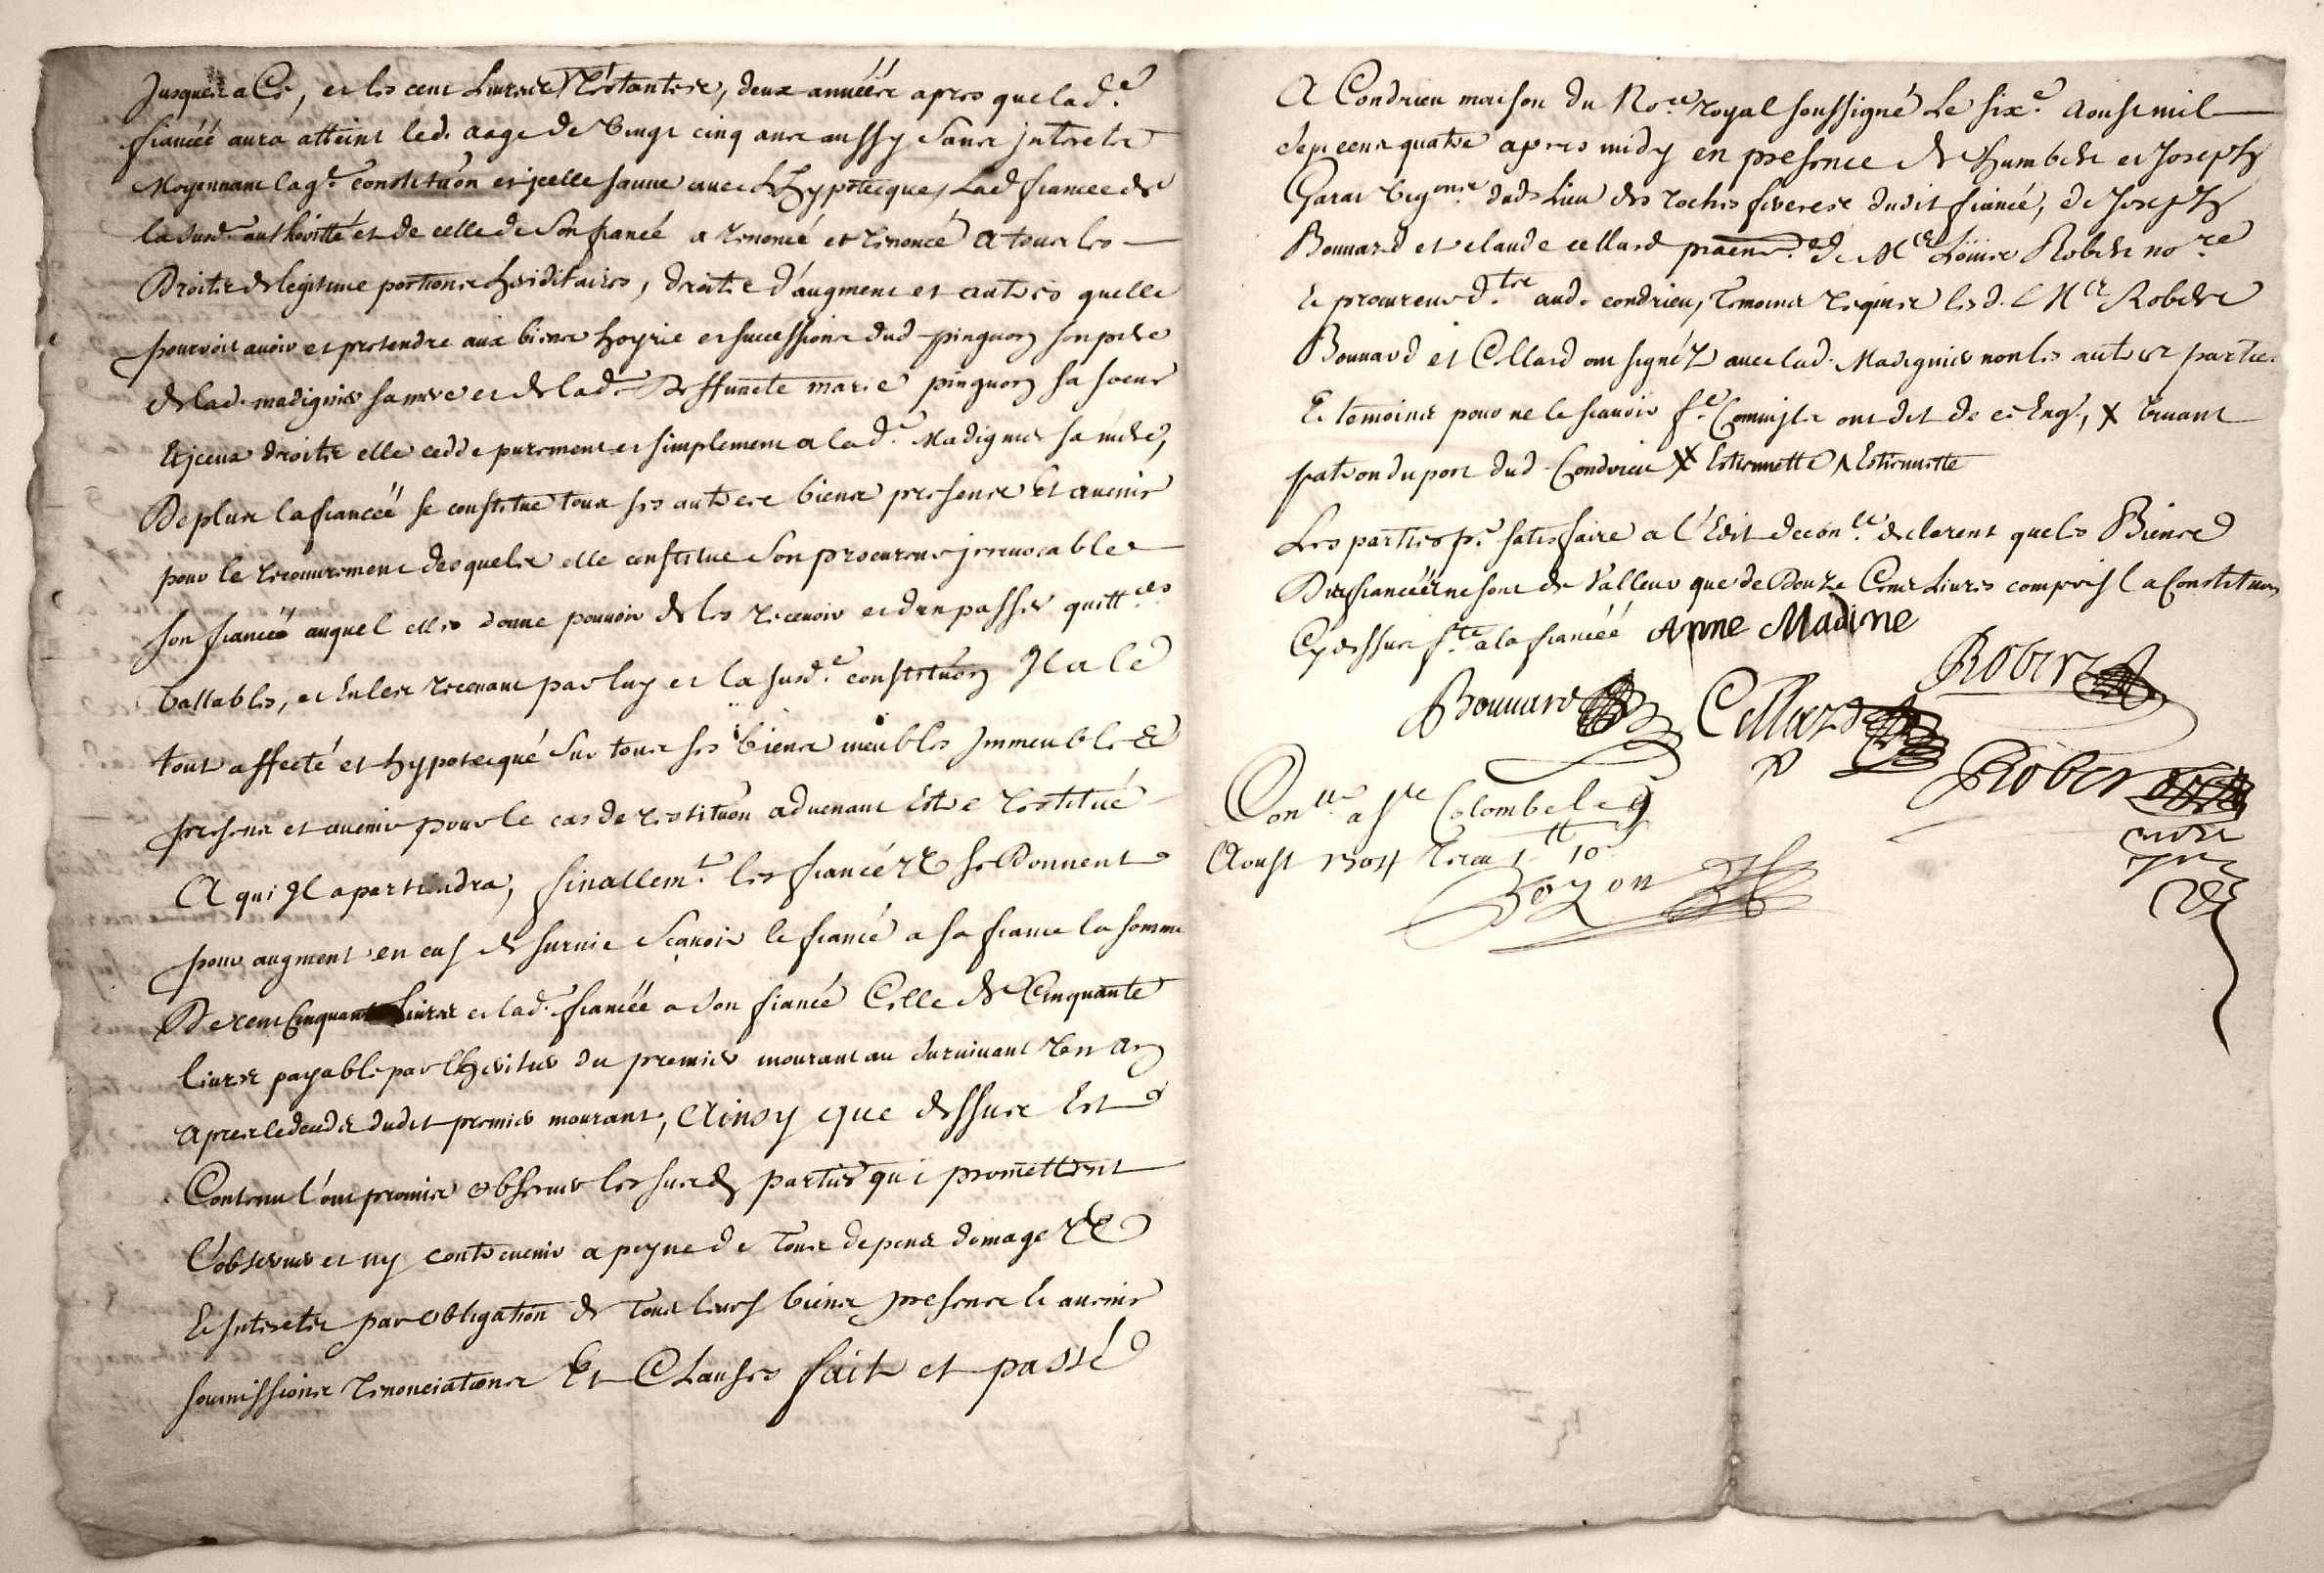 Jusques a Ce, et les cent Livres restantes, deux années apres que lad.e
fiancéé aura atteint led. aage de Vingt cinq ans aussy sans Jnterets
Moyennant lag.e constituôn et jcelle sauve avec L'hypoteque, Lad. fiancee de
la susd. authoritté et de celle de Son fiancé a renoncé et renonce a tous les
Droits de legitime portions hereditaires, droits d'augment et autres quelle
pourroit avoir et pretendre aux biens hoyrie et successions dud pinguon son pere
de lad. madignier sa mere et de lad. Deffuncte marie pinguon sa soeur
Et jceux droits elle cedde purement et simplement a lad.e Madignier sa mere,
De plus la fiancéé se constitue tous ses autres biens presens Et avenir
pour le recouvrement desquels elle constitue Son procureur jrrevocable
son fiancé auquel elle donne pouvoir de les recevoir et d'en passer quitt.ces
Vallables, et En les recevant par luy et la susd.e constituôn Jl a le
tout affecté et hypotequé Sur tous ses biens meubles Jmmeubles
presens et avenir pour le cas de restituôn advenant Estre restitué
A qui Jl apartiendra, finallem.t les fiancéz Se Donnent
pour augment en cas de survie Sçavoir le fiancé a sa fiance la somme
De cent Cinquante Livres et lad. fiancéé a Son fiancé Celle de Cinquante
livres payable par l'heritier du premier mourant au Survivant un an
apres le deceds dudit premier mourant, Ainsy que dessus Est
Contenu l'ont promis observer les susd. parties qui promettent
L'observer et ny contrevenir a peyne de Tous depens domages
Et Jnterets par obligation de Tous leurs biens presens Et avenir
soumissions renonciations Et Clauses fait et passé
A Condrieu maison du No.re royal soussigné Le six.e Aoust mil
sept cens quatre apres midy en presence de humbert et Joseph
Garat Vig.ons dud. Lieu des roches freres dudit fiancé, de Joseph
Bonnard et claude cellard de M.e Loüis Robert no.re
Et procureur aud. condrieu, Temoins requis lesd. M.e Robert
Bonnard et Cellard ont signéz avec lad. Madignier non les autres parties
Et temoins pour ne le scavoir ont dit de ce Enq.s, X
patron du port dud. Condrieu X Estiennette Estiennette
Les parties p.r satisfaire a l'Edit declarent que les Biens
Des fiancéz ne sont de Valleur que de Douze Cens Livres compris la Constituôn
Cy dessus f.te a la fiancéé Anne Madine
Robert
Bonnard Cellard
Robert
Con.llé a S.te Colombe le 9
Aoust 1704 receu